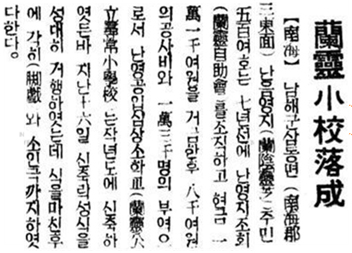 蘭靈小校落成
【南海】 남해군삼동면 (南海郡
三東面) 난음영지(蘭陰靈芝)주민
五百여호는 七년전에 난영자조회
(蘭靈自助會)를조직하고 현금 一
萬一千여원을 거출한후 八千여원
의공사비와 一萬三千명의 부역으
로서 난영공립심상소학교(蘭靈公
立尋常小學校)는작년도에 신축하
엿든바 지난十六일 신축락성식을
성대히 거행하엿는데 식을마친후
에 각히(脚戱)와 소인극까지하엿
다한다.